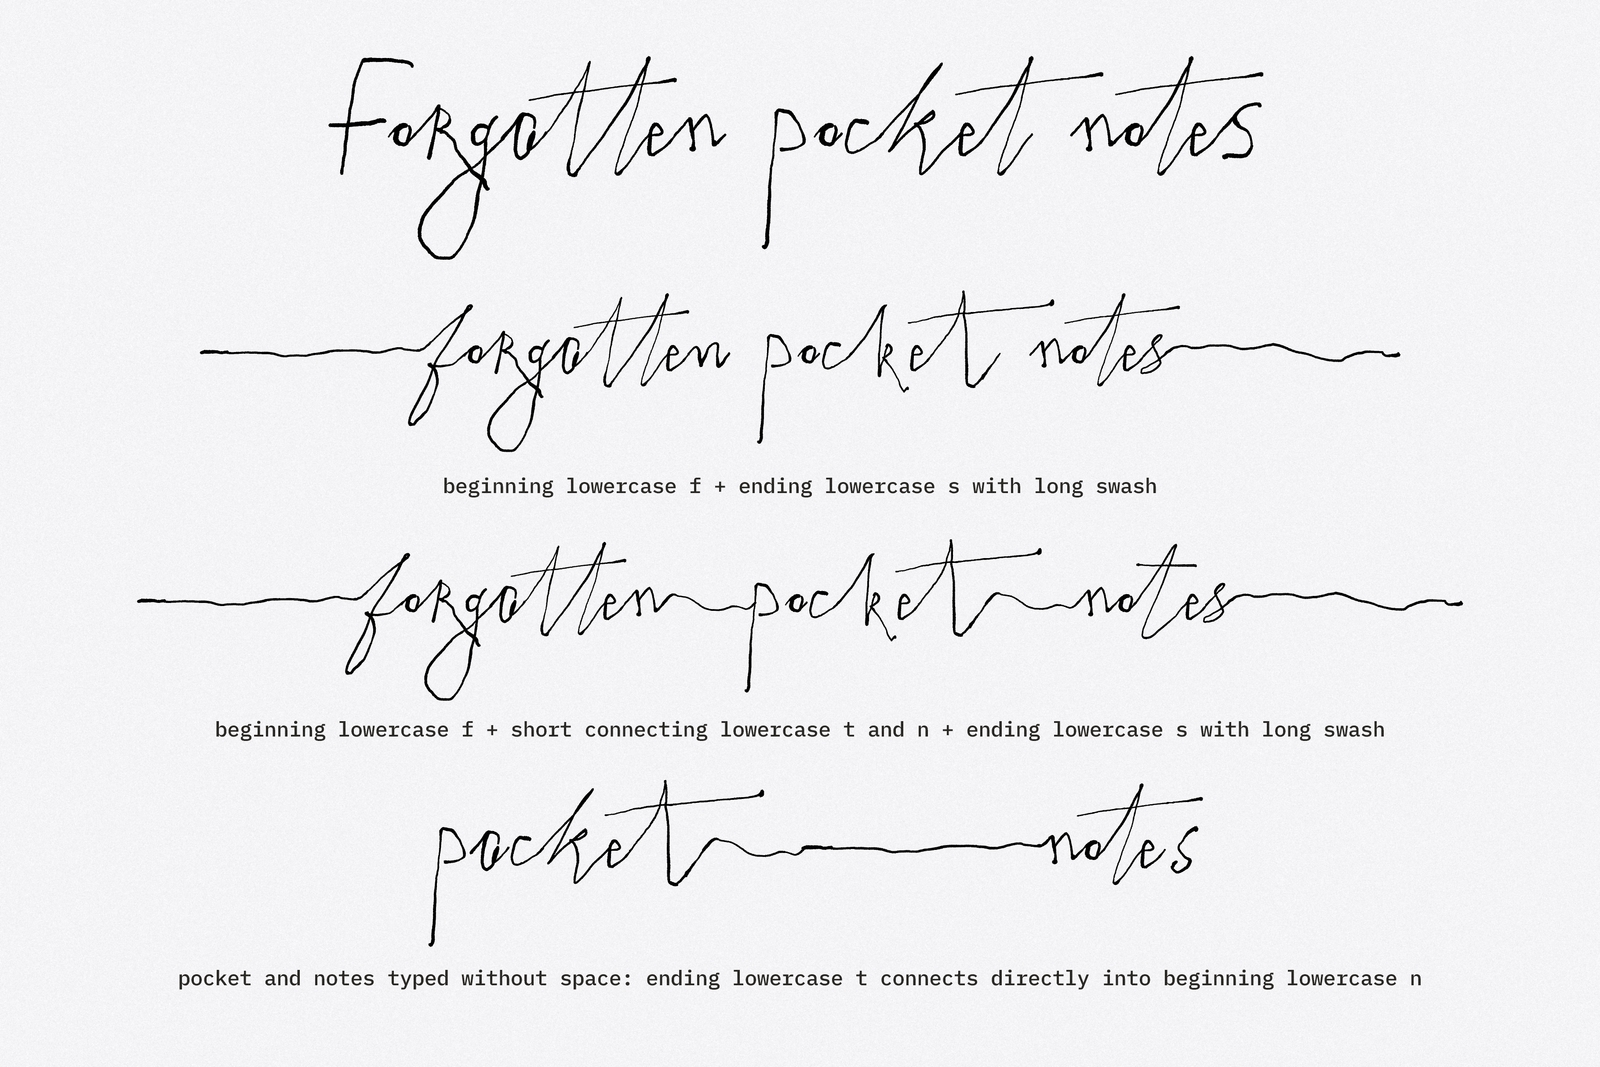 Forgotten pocket notes
forgotten pocket notes
beginning lowercase f + ending lowercase s with long swash
forgotten pocket notes
beginning lowercase f + short connecting lowercase t and n + ending lowercase s with long swash
pocket notes
pocket and notes typed without space: ending lowercase t connects directly into beginning lowercase n